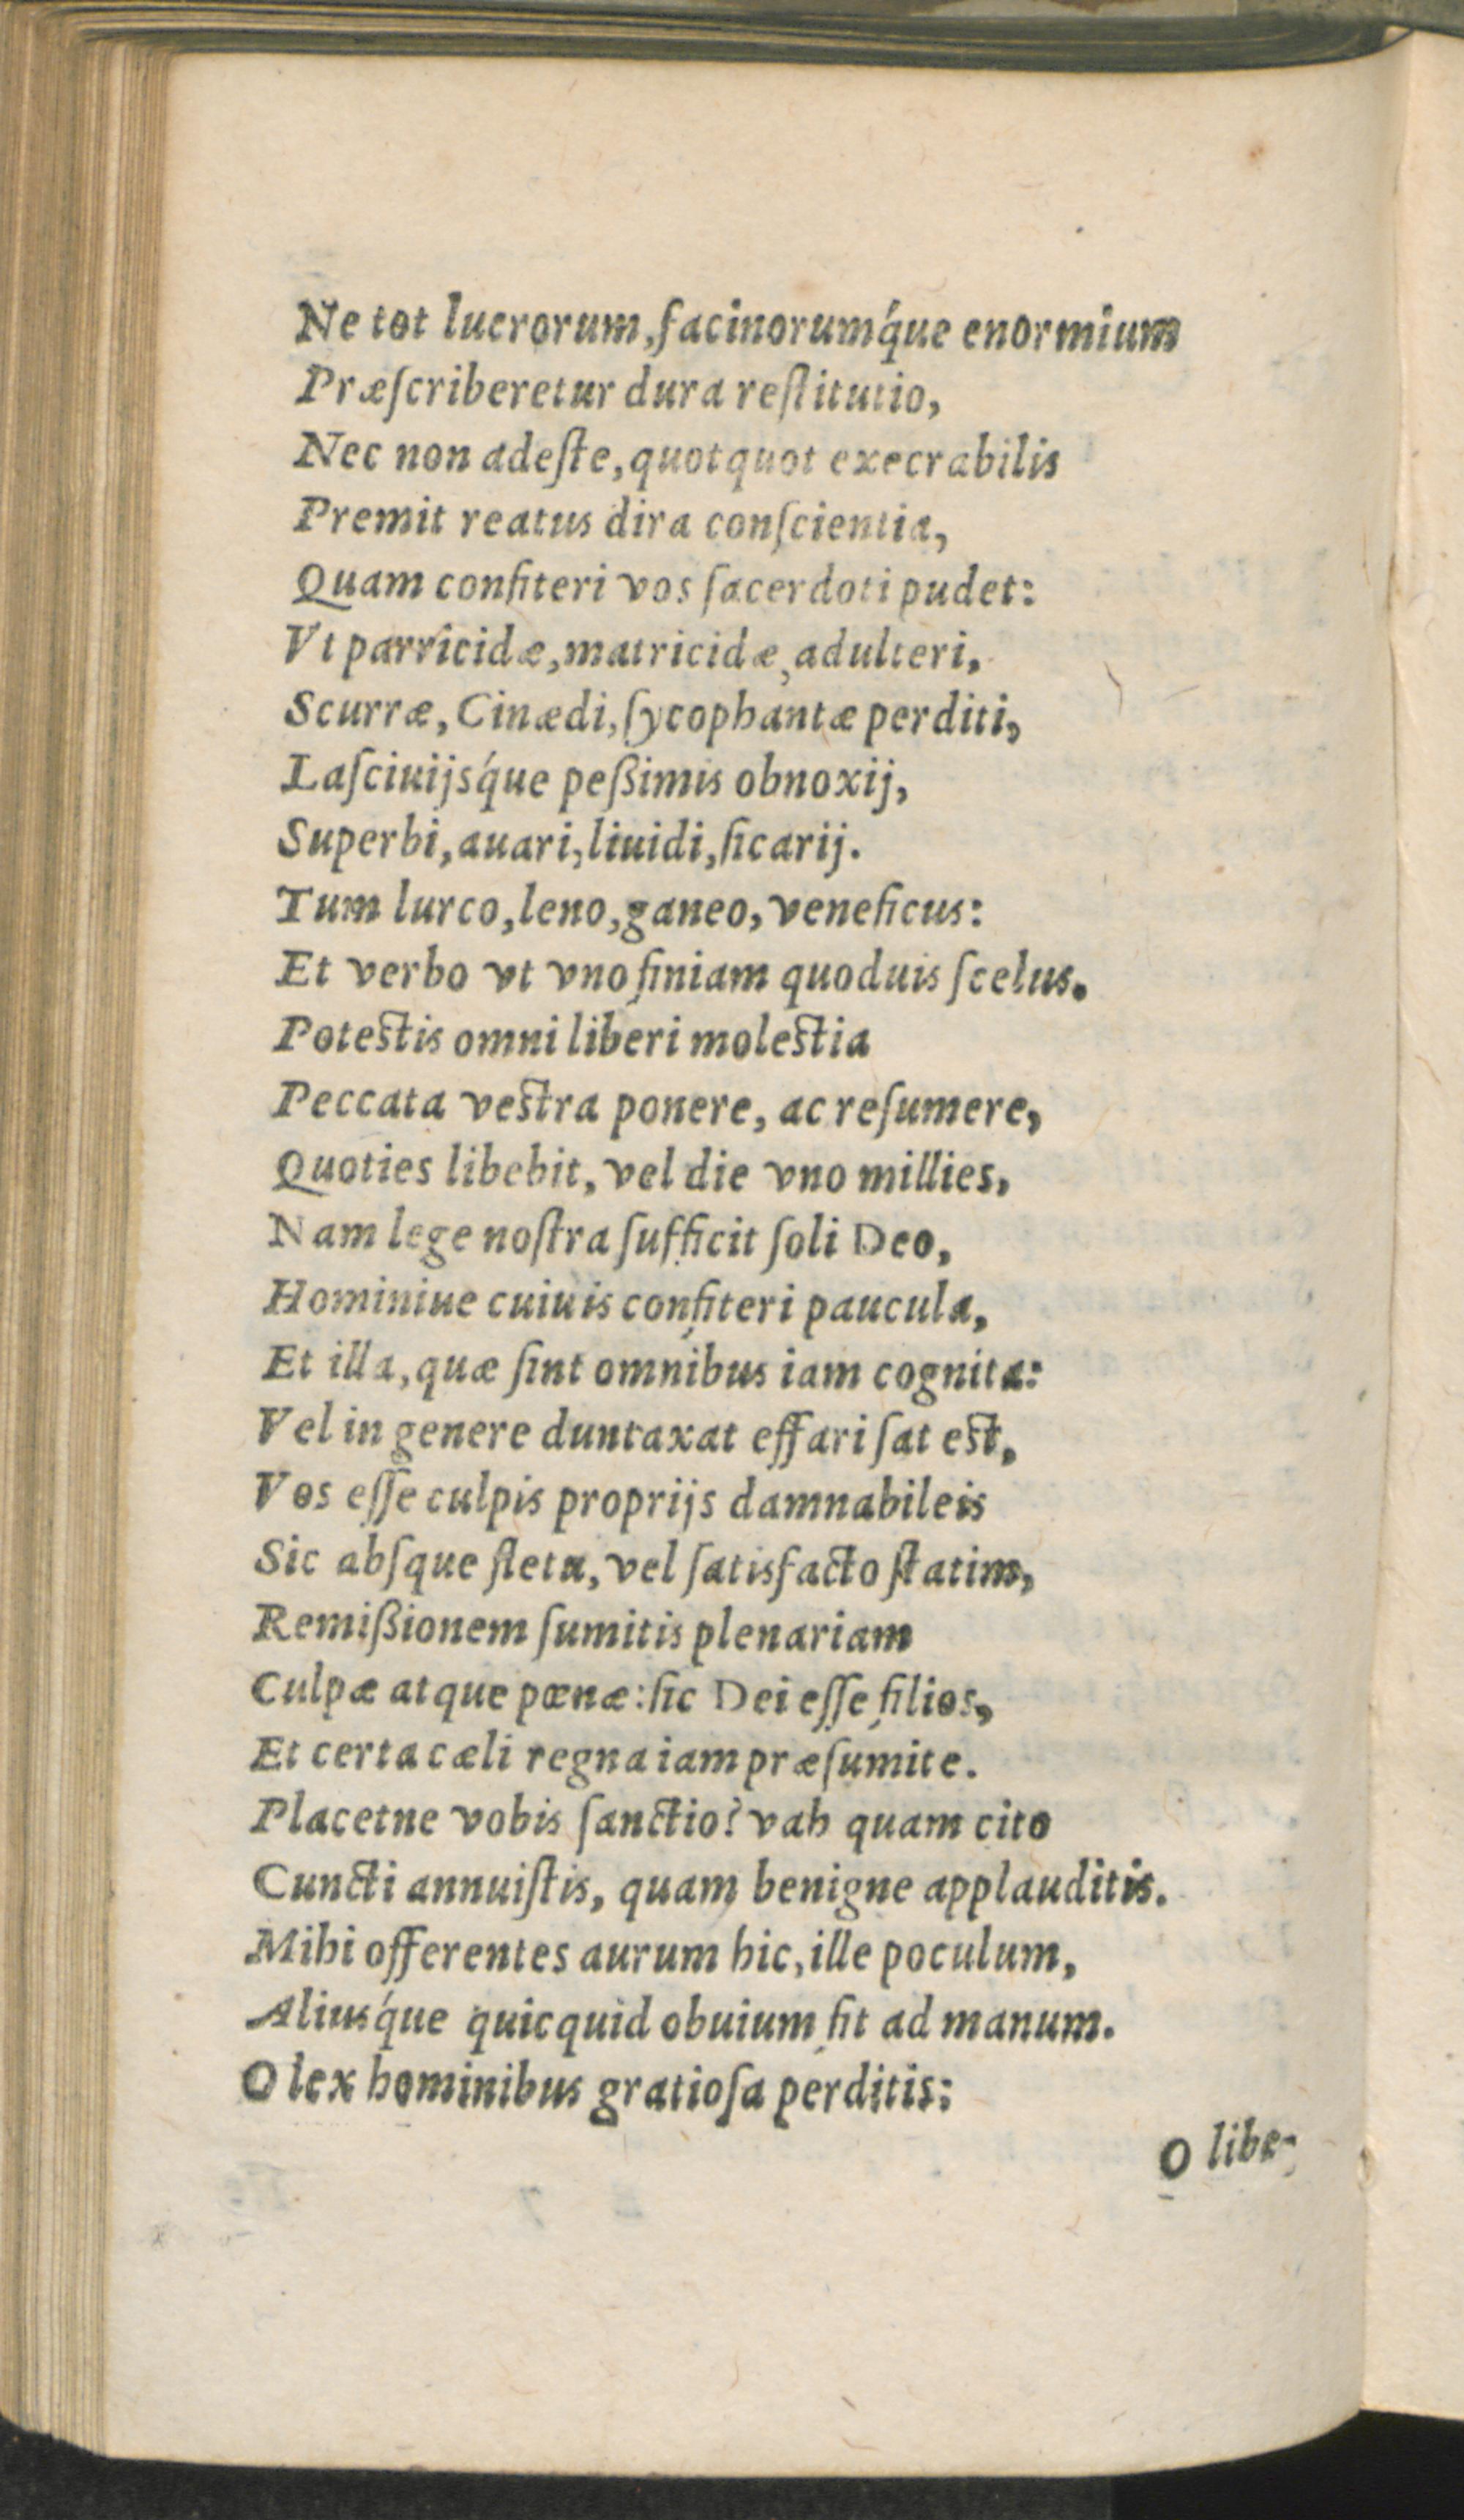 Ne tot lucrorum, facinorumq́ue enormium
Præſcriberetur dura reſtitutio,
Nec non adeſte, quotquot execrabilis
Premit reatus dira conſcientia,
Quam confiteri vos ſacerdoti pudet:
Vt parricidæ, matricidæ, adulteri,
Scurræ, Cinædi, ſycophantæ perditi,
Laſciuijsq́ue peßimis obnoxij,
Superbi, auari, liuidi, ſicarij.
Tum lurco, leno, ganeo, veneficus:
Et verbo vt vno finiam quoduis ſcelus.
Poteſtis omni liberi moleſtia
Peccata veſtra ponere, ac reſumere,
Quoties libebit, vel die vno millies,
Nam lege noſtra ſufficit ſoli Deo,
Hominiue cuiuis confiteri paucula,
Et illa, quæ ſint omnibus iam cognita:
Vel in genere duntaxat effari ſat eſt,
Vos eſſe culpis proprijs damnabileis
Sic abſque fletu, vel ſatisfacto ſtatim,
Remißionem ſumitis plenariam
Culpæ atque pœnæ: ſic Dei eſſe filios,
Et certa cæli regna iam præſumite.
Placetne vobis ſanctio? vah quam cito
Cuncti annuiſtis, quam benigne applauditis.
Mihi offerentes aurum hic, ille poculum,
Aliusq́ue quicquid obuium fit ad manum.
O lex hominibus gratioſa perditis:
O libe-